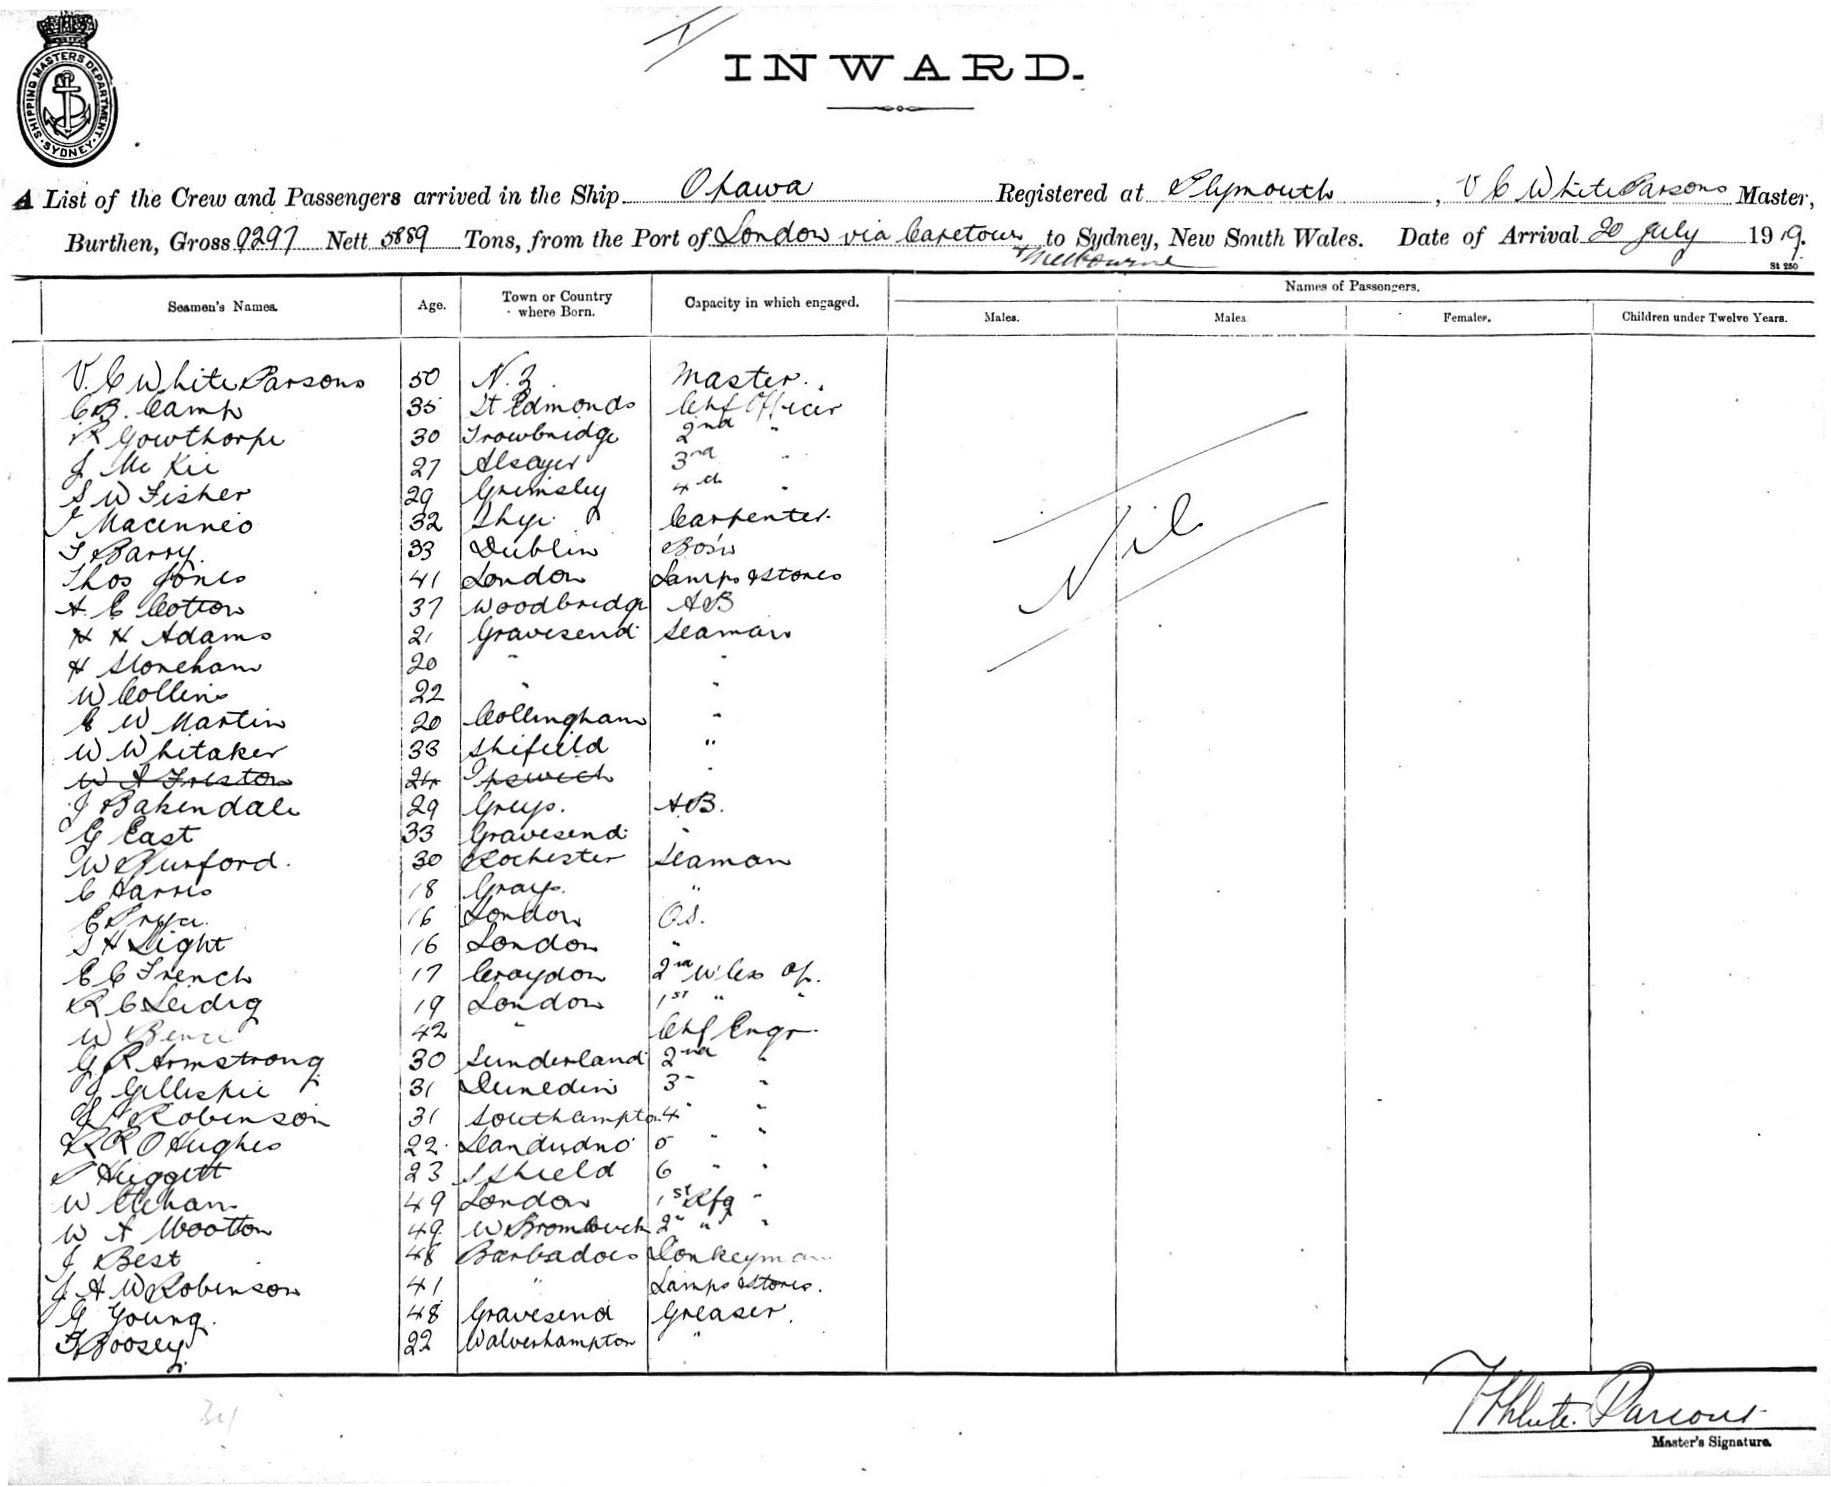 SHIPPING MASTERS DEPARTMENT. SYDNEY.
INWARD.
A List of the Crew and Passengers arrived in the Ship Opawa Registered at Plymouth, V C White Parsons Master,
Burthen, Gross 9297 Nett 5889 Tons, from the Port of London via Capetown to Sydney, New South Wales. Date of Arrival 20 July 1919.
+ Melbourne
St 250
Seamen's Names. Age. Town or Country where Born. Capacity in which engaged. Names of Passengers.
Males. Males. Females. Children under Twelve Years.
V. C White Parsons 50 N.Z. Master.
C B. Camp 35 St Edmonds Chf Officer
R Gowthorpe 30 Trowbridge 2nd "
J Mc Kie 27 Alsager 3rd "
S W Fisher 29 Grimsley 4th "
J Macinnes 32 Skye Carpenter
T Barry. 33 Dublin Bos'n
Thos Jones 41 London Lamps & Stores
A. E Cotton 37 Woodbridge AB
H H Adams 21 Gravesend Seaman
H Stoneham 20 " "
W Collins 22 " "
E W Martin 20 Collingham "
W Whitaker 33 Shifield "
W A Friston 24 Ipswich "
J Bakendale 29 Greys. A.B.
G East 33 Gravesend "
W Burford. 30 Rochester Seaman
C Harris 18 Grays. "
E Prya. 16 London O.S.
S H Light 16 London "
E C French 17 Croydon 2nd W'less Op.
R C Leidig 19 London 1st " "
W 42 " Chf Engr.
G R Armstrong 30 Sunderland 2nd "
J Gillespie 31 Dunedin 3 "
Robinson 31 Southampton 4 " "
R R O Hughes 22 Llandudno 5 " "
Huggett 23 S Shield 6 " "
W 49 London 1st Rfg "
W A Wootton 49 W Bromwich 2 " "
J Best 48 Barbadoes Donkeyman
J A W Robinson 41 " Lamps & Stores.
G Young. 48 Gravesend Greaser.
F Boosey 22 Walverhampton "
Nil
34
V White Parsons
Master's Signature.